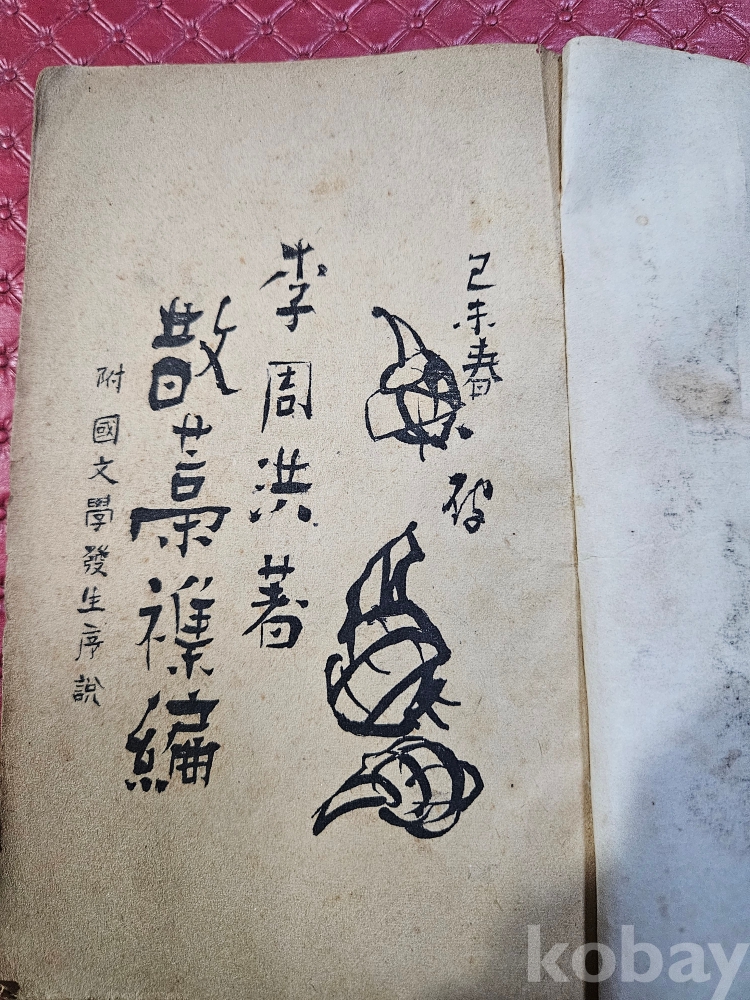 己未春
李周洪著
散藁襍編
附國文學發生序說
kobay